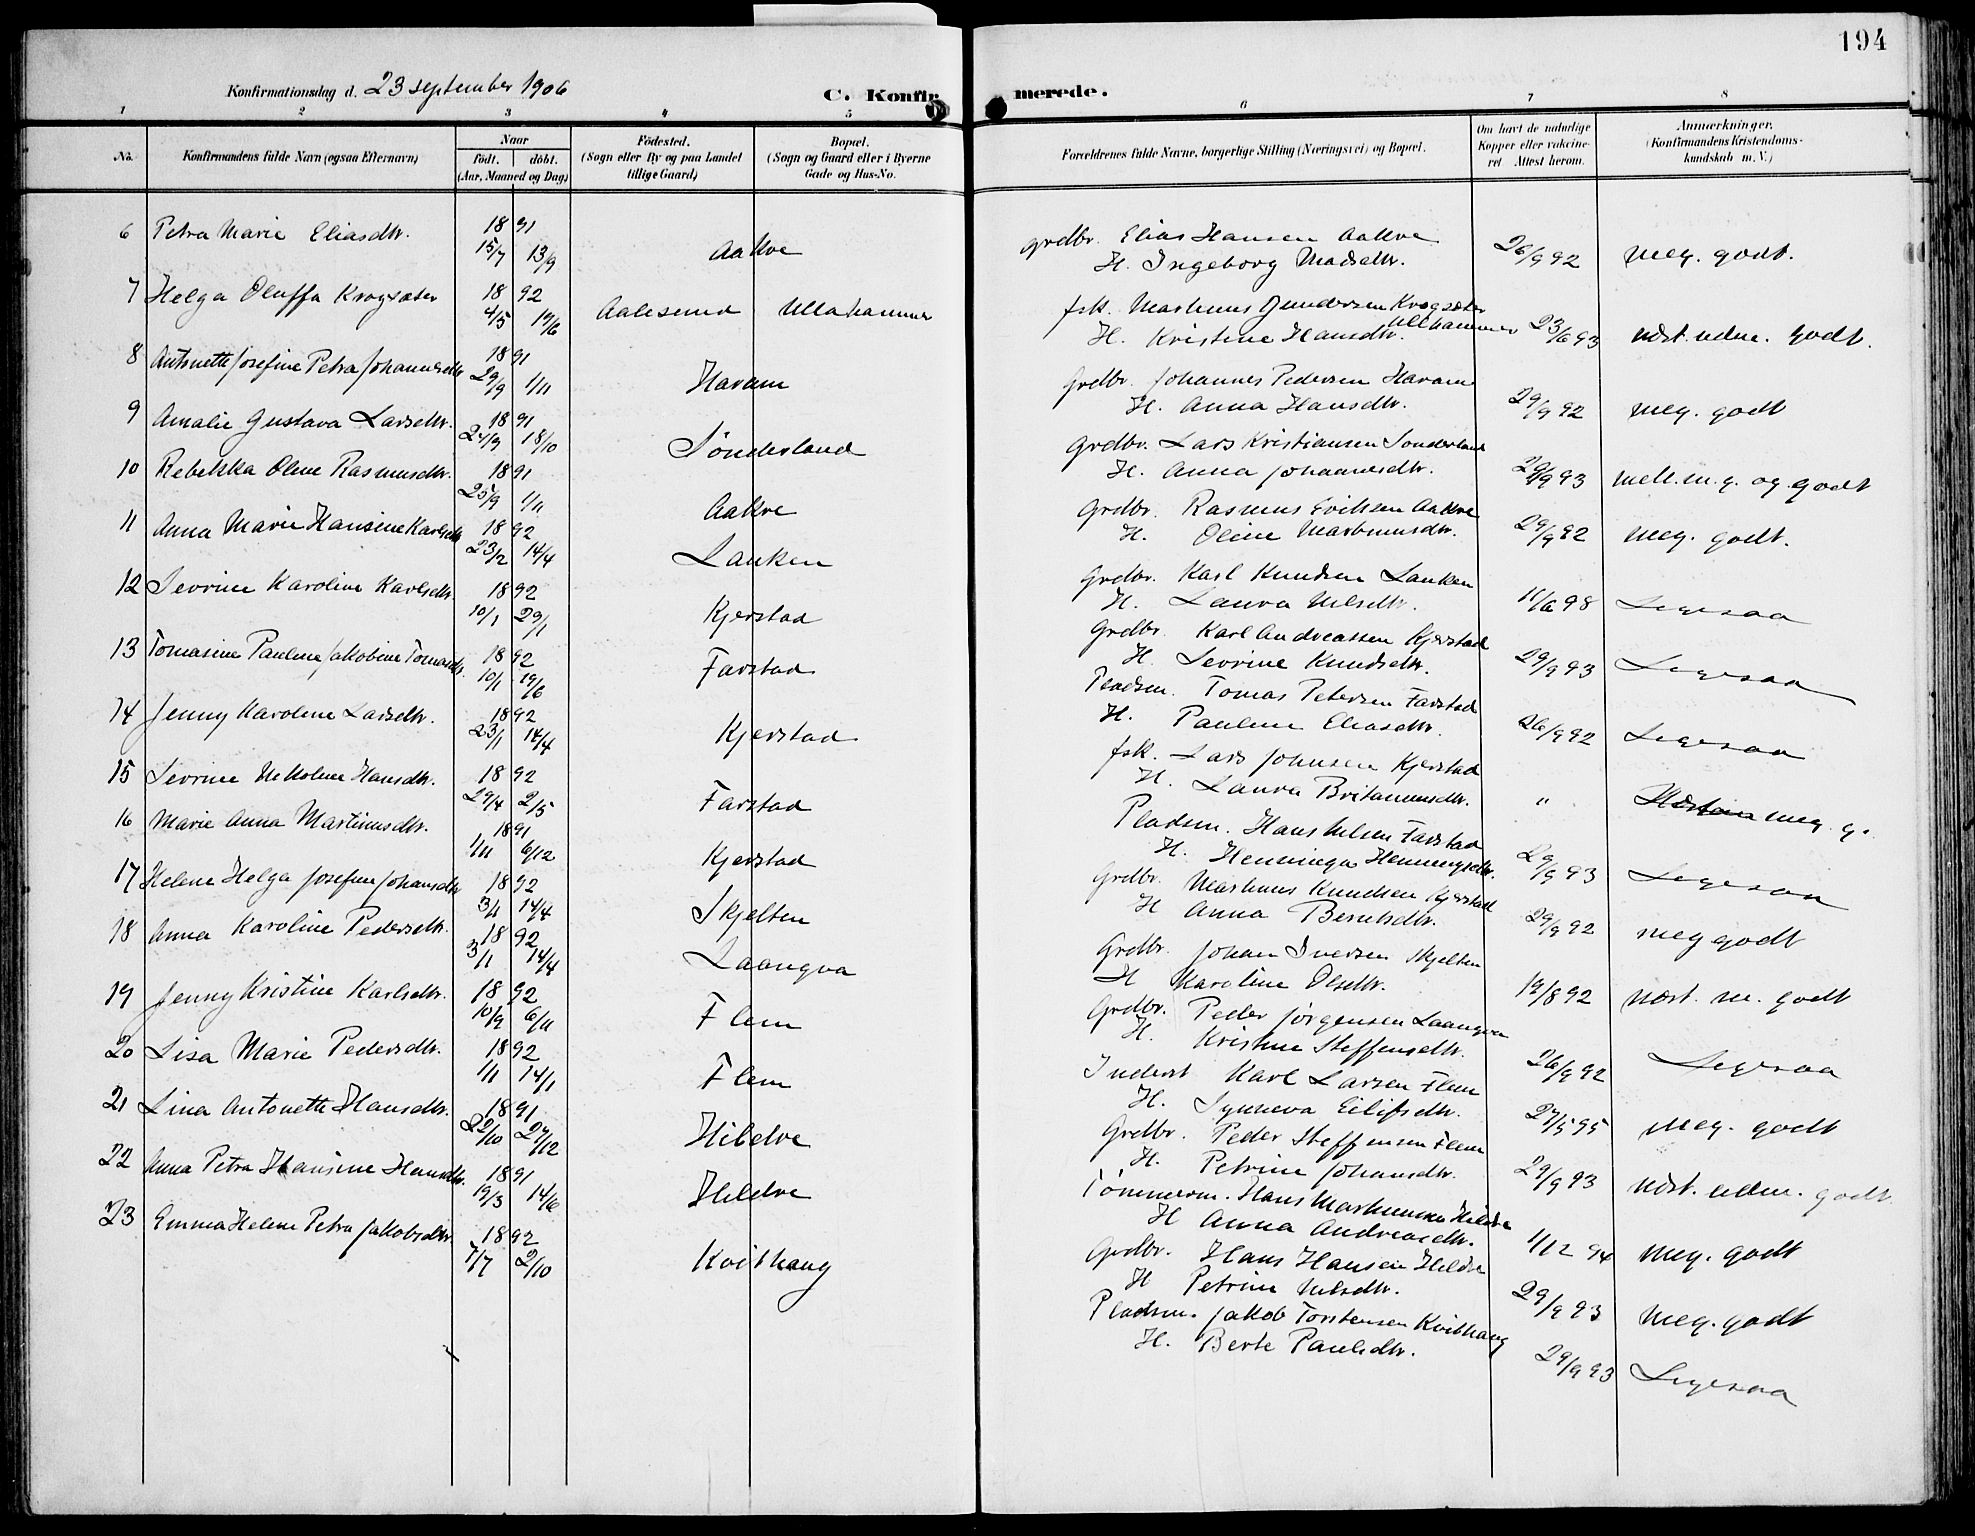 194
Konfirmationsdag d. 23 september 1906
C. Konfirmerede.
1 2 3 4 5 6 7 8
No. Konfirmandens fulde Navn (ogsaa Efternavn) Naar født. døbt. (Aar, Maaned og Dag) Fødested. (Sogn eller By og paa Landet tillige Gaard) Bopæl. (Sogn og Gaard eller i Byerne Gade og Hus-No. Forældrenes fulde Navne, borgerlige Stilling (Næringsvei) og Bopæl. Om havt de naturlige Kopper eller vakcineret Attest herom. Anmærkninger. (Konfirmandens Kristendomskundskab m. V.)
6 Petra Marie Eliasdtr. 1891 15/7 13/9 Aakre Grdbr. Elias Hansen Aakre
H. Ingeborg Madsdtr. 26/9 92 meg. godt.
7 Helga Oluffa Krogsæter 1892 4/5 19/6 Aalesund Ullahammer fsk. Martinus Gundersen Krogsæter Ullhammer
H. Kristine Hansdtr. 23/6 93 næst. udm. godt.
8 Antonette Josefine Petra Johannesdtr 1891 29/9 1/11 Haram Grdbr. Johannes Pedersen Haram
H. Anna Hansdtr. 29/9 92 meg. godt
9 Amalie Gustava Larsdtr. 1891 18/10 Sønderland Grdbr. Lars Kristiansen Sonderland
H. Anna Johannesdtr. 29/9 93 mell. m. g. og godt
10 Rebekka Oline Rasmusdtr. 1891 25/9 1/11 Aakre Grdbr. Rasmus Eriksen Aakre
H. Oline Martinusdtr. 29/9 92 meg. godt.
11 Anna Marie Hansine Karlsdtr 1892 23/2 14/4 Lauken Grdbr. Karl Knudsen Lauken
H. Laura Nilsdtr. 11/6 98 Ligesaa
12 Sevrine Karoline Karlsdtr. 1892 10/1 29/1 Kjerstad Grdbr. Karl Andreassen Kjerstad
H. Sevrine Knudsdtr. 29/9 93 Ligesaa
13 Tomasine Pauline Jakobine Tomasdtr. 1892 10/1 19/6 Farstad Pladsm. Tomas Petersen Farstad
H. Pauline Eliasdtr. 26/9 92 Ligesaa
14 Jenny Karoline Larsdtr. 1892 23/1 14/4 Kjerstad fsk. Lars Johnsen Kjerstad
H. Laura Britanusdtr. " meg. g.
15 Sevrine Nikoline Hansdtr. 1892 29/4 2/5 Farstad Pladsm. Hans Nilsen Farstad
H. Henninga Henningsdtr. 29/9 93 Ligesaa
16 Marie Anna Martinusdtr. 1891 1/11 6/12 Kjerstad Grdbr. Martinus Knudsen Kjerstad
H Anna Berntsdtr. 29/9 92 meg godt
17 Helene Helga Josefine Johansdtr 1892 3/1 14/4 Skjelten Grdbr. Johan Iversen Skjelten
H Karoline Olsdtr. 19/8 92 næst. m. godt
18 Anna Karoline Pedersdtr. 1892 3/1 14/4 Laangva Grdbr. Peder Jørgensen Laangva
H. Kristine Steffensdtr. 26/9 92 Ligesaa
19 Jenny Kristine Karlsdtr. 1892 10/9 6/11 Flem Inderst Karl Larsen Flem
H. Synneva Eilifsdtr. 27/5 95 meg. godt
20 Lisa Marie Pedersdtr. 1892 1/1 14/1 Flem Grdbr. Peder Steffensen Flem
H. Petrine Johansdtr. 29/9 93 næst. udm. godt
21 Lina Antonette Hansdtr. 1891 22/10 27/12 Hildre Tømmerm. Hans Martinussen Hildre
H Anna Andreasdtr. 1/12 94 meg. godt
22 Anna Petra Hansine Hansdtr. 1891 19/3 14/6 Hildre Grdbr. Hans Hansen Hildre
H Petrine Nilsdtr. 29/9 93 meg. godt
23 Emma Helene Petra Jakobsdtr. 1892 7/7 2/10 Kvithaug Pladsm. Jakob Torstensen Kvithaug
H. Berte Paulsdtr. 29/9 93 Ligesaa